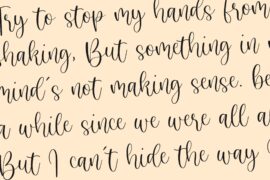 Try to stop my hands from
shaking, But something in
mind's not making sense. be
a while since we were all a
But I can't hide the way